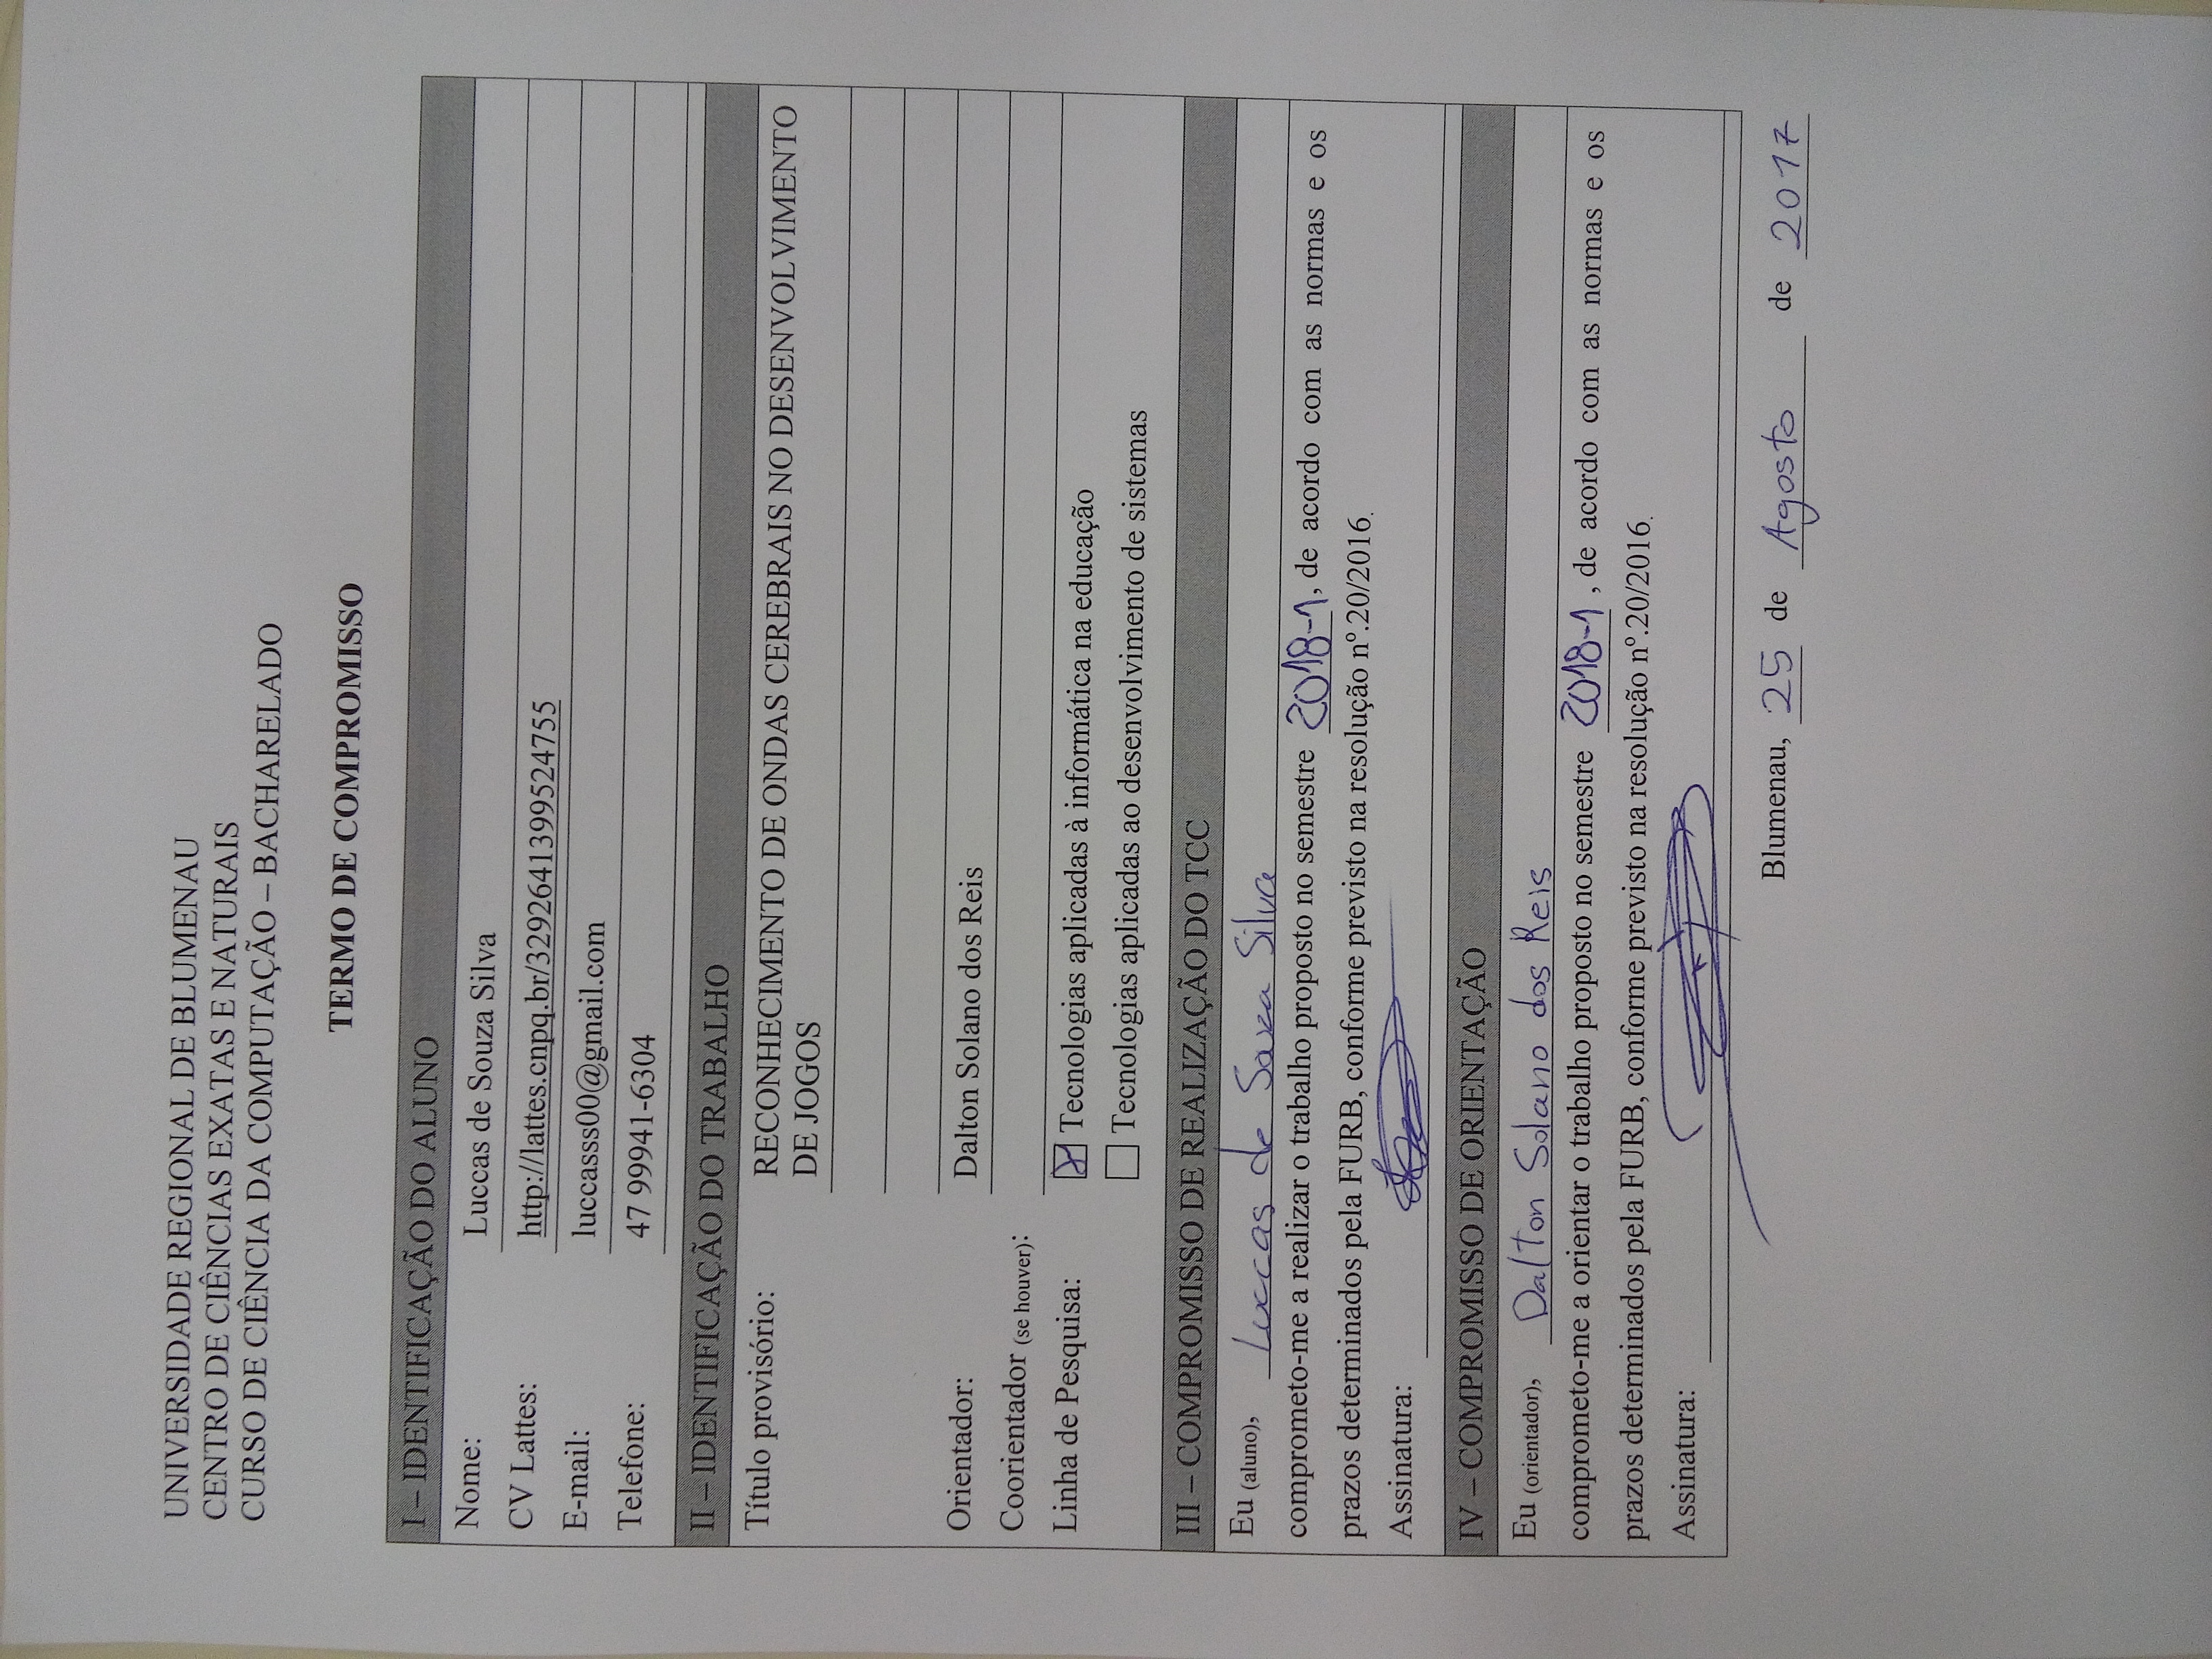 UNIVERSIDADE REGIONAL DE BLUMENAU
CENTRO DE CIÊNCIAS EXATAS E NATURAIS
CURSO DE CIÊNCIA DA COMPUTAÇÃO – BACHARELADO
TERMO DE COMPROMISSO
I – IDENTIFICAÇÃO DO ALUNO
Nome: Luccas de Souza Silva
CV Lattes: http://lattes.cnpq.br/3292641399524755
E-mail: luccasss00@gmail.com
Telefone: 47 99941-6304
II – IDENTIFICAÇÃO DO TRABALHO
Título provisório: RECONHECIMENTO DE ONDAS CEREBRAIS NO DESENVOLVIMENTO
DE JOGOS
Orientador: Dalton Solano dos Reis
Coorientador (se houver):
Linha de Pesquisa: Tecnologias aplicadas à informática na educação
Tecnologias aplicadas ao desenvolvimento de sistemas
III – COMPROMISSO DE REALIZAÇÃO DO TCC
Eu (aluno), Luccas de Souza Silva
comprometo-me a realizar o trabalho proposto no semestre 2018-1, de acordo com as normas e os
prazos determinados pela FURB, conforme previsto na resolução nº.20/2016.
Assinatura:
IV – COMPROMISSO DE ORIENTAÇÃO
Eu (orientador), Dalton Solano dos Reis
comprometo-me a orientar o trabalho proposto no semestre 2018-1 , de acordo com as normas e os
prazos determinados pela FURB, conforme previsto na resolução nº.20/2016.
Assinatura:
Blumenau, 25 de Agosto de 2017